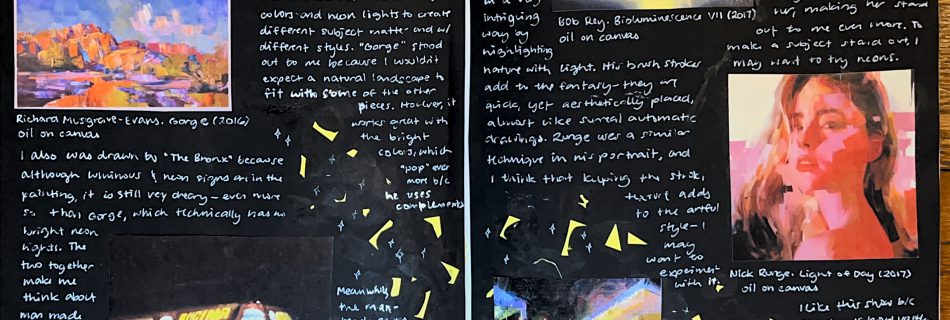 colors and neon lights to create
different subject matter and w/
different styles. "Gorge" stood
out to me because I wouldn't
expect a natural landscape to
fit with some of the other
pieces. However, it
works great with
the bright
colors, which
"pop" even
more b/c
he uses
complements
Richard Musgrave-Evans. Gorge (2016)
oil on canvas
I also was drawn by "The Bronx" because
although luminous & neon signs are in the
painting, it is still very dreary - even more
so than Gorge, which technically has no
bright neon
lights. The
two together
make me
think about
man made
Meanwhile,
the man-
intriguing
way by
highlighting
nature with light. His brush strokes
add to the fantasy - they are
quick, yet aesthetically placed,
almost like surreal automatic
drawings. Runge was a similar
technique in his portrait, and
I think that keeping the stroke
texture adds
to the artful
style - I
may
want to
experiment
with it.
Bob Rey. Bioluminescence VII (2017)
oil on canvas
her, making her stand
out to me even more. To
make a subject stand out, I
may want to try neons.
Nick Runge. Light of Day (2017)
oil on canvas
I like this show b/c